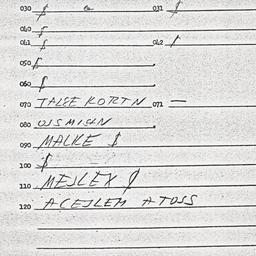 030 $ 031 $
040 $
041 $ 042 $
050 $
060 $
070 TALEE KORTN 071 —
080 OJSMISHN
090 MALKE $
100 $
110 MEJLEX $
120 ACEJLEM ATOSS